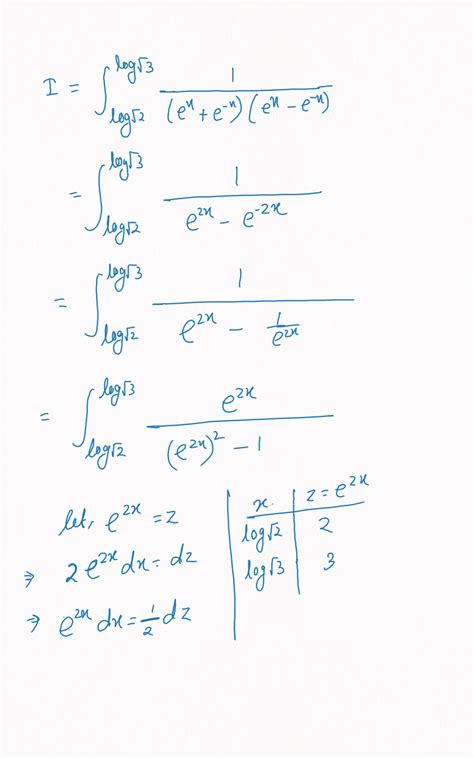 I = ∫_{log√2}^{log√3} 1/((e^x + e^-x)(e^x - e^-x))
= ∫_{log√2}^{log√3} 1/(e^2x - e^-2x)
= ∫_{log√2}^{log√3} 1/(e^2x - 1/e^2x)
= ∫_{log√2}^{log√3} e^2x/((e^2x)^2 - 1)
let, e^2x = z
⇒ 2e^2x dx = dz
⇒ e^2x dx = 1/2 dz
x. | z = e^2x
log√2 | 2
log√3 | 3